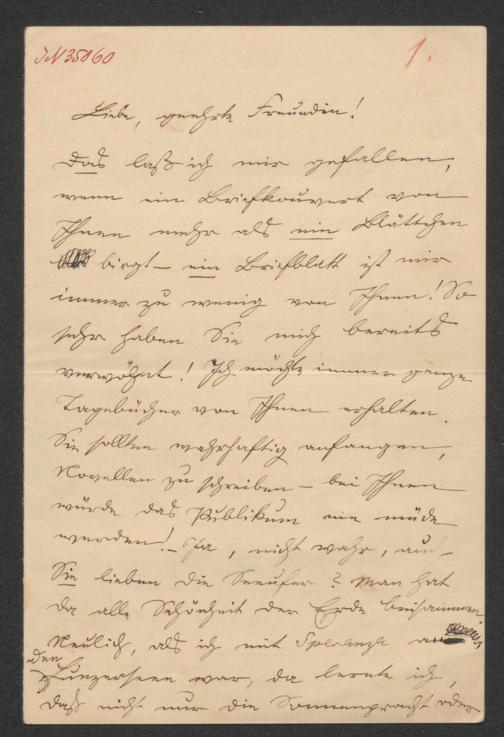 JN 35060
1.
Liebe, geehrte Freundin!
Das laß ich mir gefallen,
wenn ein Briefkouvert von
Ihnen mehr als ein Blättchen
birgt – ein Briefblatt ist mir
immer zu wenig von Ihnen! So
sehr haben Sie mich bereits
verwöhnt! Ich möchte immer ganze
Tagebücher von Ihnen erhalten.
Sie sollten wahrhaftig anfangen,
Novellen zu schreiben – bei Ihnen
würde das Publikum nie müde
werden! – Ja, nicht wahr, auch
Sie lieben die Seeufer? Man hat
da alle Schönheit der Erde beisammen.
Neulich, als ich mit Speranza an
den Lunzerseen war, da lernte ich,
daß nicht nur die Sonnenpracht oder